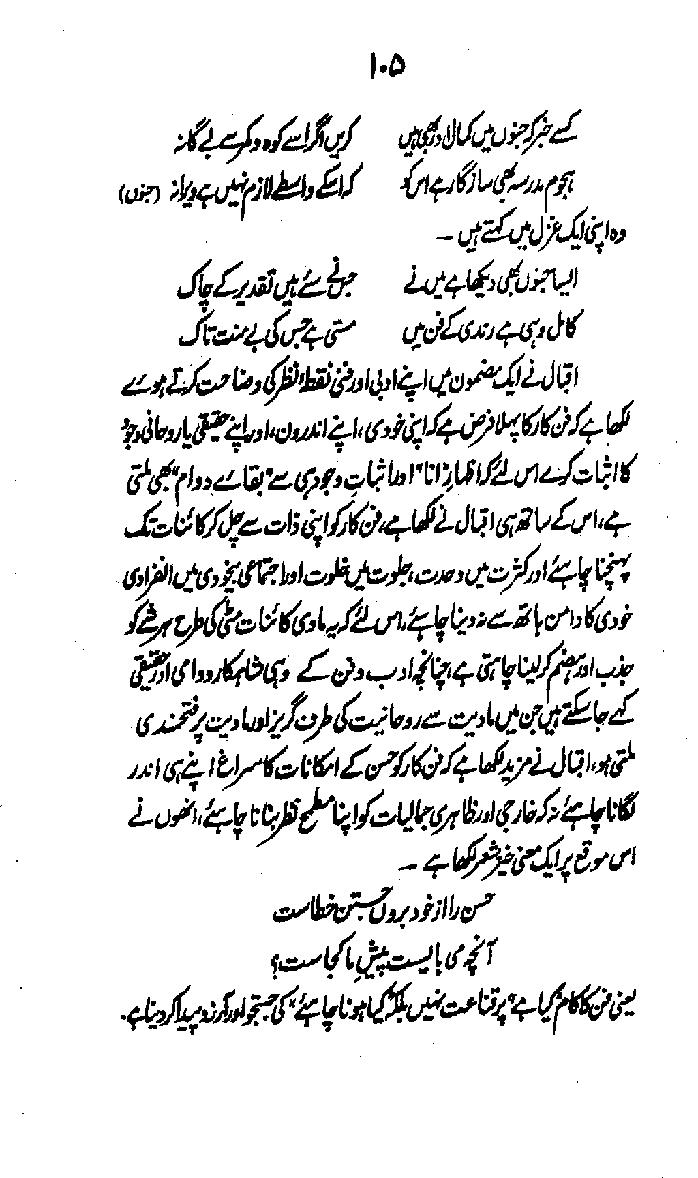 ۱۰۵
کسے خبر کہ جنوں میں کمال اور بھی ہیں کریں اگر اسے کوہ و کمر سے بے گانہ
ہجوم مدرسہ بھی سازگار ہے اس کو کہ اسکے واسطے لازم نہیں ہے ویرانہ (جنوں)
وہ اپنی ایک غزل میں کہتے ہیں ۔
ایسا جنوں بھی دیکھا ہے میں نے جس نے سئے ہیں تقدیر کے چاک
کامل وہی ہے رندی کے فن میں مستی ہے جس کی بے منت تاک
اقبال نے ایک مضمون میں اپنے ادبی اور فنی نقطۂ نظر کی وضاحت کرتے ہوے
لکھا ہے کہ فن کار کا پہلا فرض ہے کہ اپنی خودی، اپنے اندرون، اور اپنے حقیقی یا روحانی وجود
کا اثبات کرے اس لئے کہ اظہارِ "انا" اور اثباتِ وجود ہی سے "بقاے دوام" بھی ملتی
ہے، اس کے ساتھ ہی اقبال نے لکھا ہے، فن کار کو اپنی ذات سے چل کر کائنات تک
پہنچنا چاہئے اور کثرت میں وحدت، جلوت میں خلوت اور اجتماعی بیخودی میں انفرادی
خودی کا دامن ہاتھ سے نہ دینا چاہئے، اس لئے کہ یہ مادی کائنات مٹی کی طرح ہر شے کو
جذب اور ہضم کر لینا چاہتی ہے، چنانچہ ادب و فن کے وہی شاہکار دوامی اور حقیقی
کہے جا سکتے ہیں جن میں مادیت سے روحانیت کی طرف گریز اور مادیت پر فتحمندی
ملتی ہو، اقبال نے مزید لکھا ہے کہ فن کار کو حسن کے امکانات کا سراغ اپنے ہی اندر
لگانا چاہئے نہ کہ خارجی اور ظاہری جمالیات کو اپنا مطمح نظر بنانا چاہئے، انھوں نے
اس موقع پر ایک معنی خیز شعر لکھا ہے ۔
حسن را از خود بروں جستن خطاست
آنچہ می بایست پیشِ ما کجاست؟
یعنی فن کا کام "کیا ہے" پر قناعت نہیں بلکہ "کیا ہونا چاہئے" کی جستجو اور آرزو پیدا کر دینا ہے۔